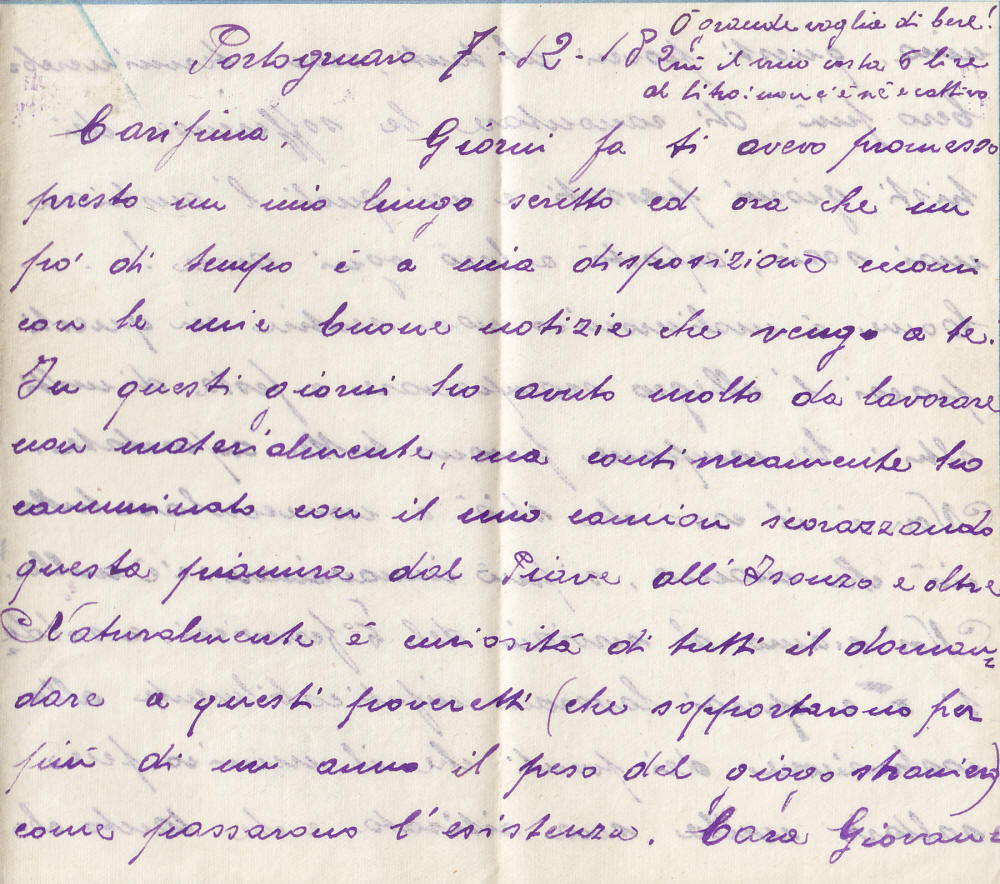 Ò grande voglia di bere!
Quì il vino costa 6 lire
al litro: non c'è n'è e cattivo
Portogruaro 7-12-18
Carissima, Giorni fa ti avevo promesso
presto un mio lungo scritto ed ora che un
pò di tempo è a mia disposizione eccomi
con le mie buone notizie che vengo a te.
In questi giorni ho avuto molto da lavorare
non materialmente, ma continuamente ho
camminato con il mio camion scorazzando
questa pianura dal Piave all'Isonzo e oltre
Naturalmente è curiosità di tutti il doman-
dare a questi poveretti (che sopportarono per
più di un anno il peso del giogo straniero)
come passarono l'esistenza. Cara Giovan-